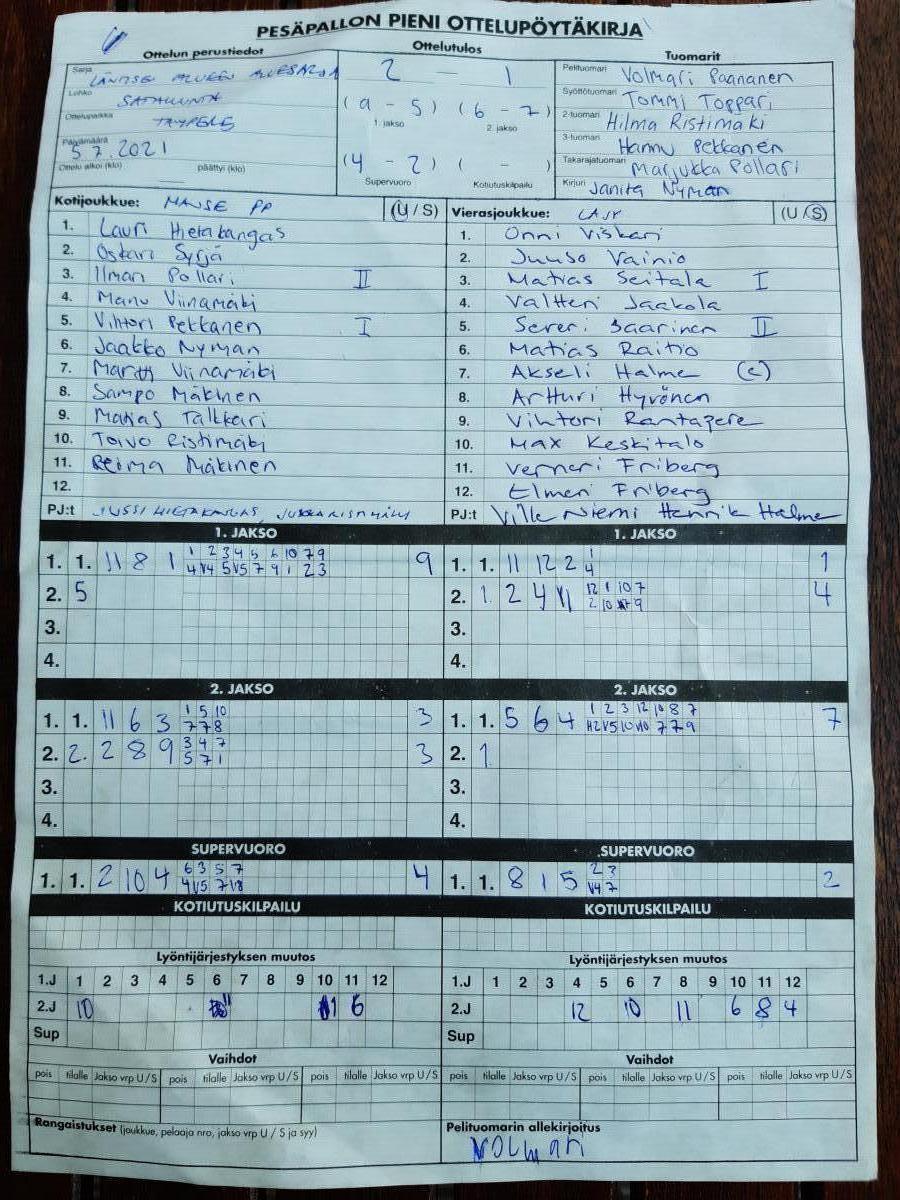 PESÄPALLON PIENI OTTELUPÖYTÄKIRJA
Ottelun perustiedot Ottelutulos Tuomarit
Sarja LÄNTISEN ALUEEN ALUESARJA
Lohko SATAKUNTA
Ottelupaikka TAMPERE
Päivämäärä 5.7.2021
Ottelu alkoi (klo) päättyi (klo)
2 — 1
(9 - 5) (6 - 7)
1. jakso 2. jakso
(4 - 2) ( - )
Supervuoro Kotiutuskilpailu
Pelituomari Volmari Paananen
Syöttötuomari Tommi Toppari
2-tuomari Hilma Ristimäki
3-tuomari Hannu Pekkanen
Takarajatuomari Marjukka Pollari
Kirjuri Janita Nyman
Kotijoukkue: MANSE PP (U / S)
1. Lauri Hietakangas
2. Oskari Syrjä
3. Ilmari Pollari II
4. Manu Viinamäki
5. Vihtori Pekkanen I
6. Jaakko Nyman
7. Martti Viinamäki
8. Sampo Mäkinen
9. Matias Talkkari
10. Toivo Ristimäki
11. Reima Mäkinen
12.
PJ:t JUSSI HIETAKANGAS, JUKKA RISTIMÄKI
Vierasjoukkue: LAJP (U / S)
1. Onni Viskari
2. Juuso Vainio
3. Matias Seitala I
4. Valtteri Jaakola
5. Severi Saarinen II
6. Matias Raitio
7. Akseli Halme (c)
8. Artturi Hyvönen
9. Vihtori Rantapere
10. Max Keskitalo
11. Verneri Friberg
12. Elmeri Friberg
PJ:t Ville Niemi Henrik Halme
1. JAKSO
1. 1. 11 8 1 1 2 3 4 5 6 10 7 9 9
2. 5
3.
4.
1. JAKSO
1. 1. 11 12 2 1 1
4
2. 1. 2 4 VI 12 1 10 7 4
3.
4.
2. JAKSO
1. 1. 11 6 3 1 5 10 3
7 7 8
2. 2. 2 8 9 3 4 7 3
5 7 1
3.
4.
2. JAKSO
1. 1. 5 6 4 1 2 3 12 10 8 7 7
2. 1
3.
4.
SUPERVUORO
1. 1. 2 10 4 6 3 5 7 4
4 V5 7 V8
SUPERVUORO
1. 1. 8 1 5 2 3 2
V4 7
KOTIUTUSKILPAILU
KOTIUTUSKILPAILU
Lyöntijärjestyksen muutos
1.J 1 2 3 4 5 6 7 8 9 10 11 12
2.J 10 11 6
Sup
Lyöntijärjestyksen muutos
1.J 1 2 3 4 5 6 7 8 9 10 11 12
2.J 12 10 11 6 8 4
Sup
Vaihdot
pois tilalle Jakso vrp U / S pois tilalle Jakso vrp U / S pois tilalle Jakso vrp U / S
Vaihdot
pois tilalle Jakso vrp U / S pois tilalle Jakso vrp U / S pois tilalle Jakso vrp U / S
Rangaistukset (joukkue, pelaaja nro, jakso vrp U / S ja syy)
Pelituomarin allekirjoitus
Volmari